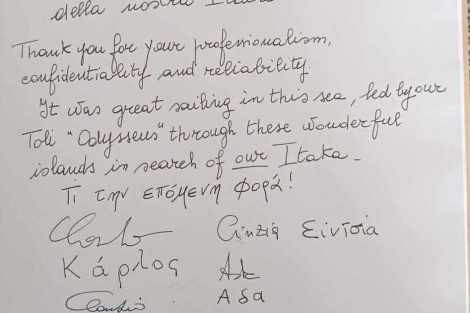 della nostra Itaca
Thank you for your professionalism,
confidentiality and reliability.
It was great sailing in this sea, led by our
Toli "Odysseus" through these wonderful
islands in search of our Itaka -
Τι την επόμενη φορά!
Cinzia Σιντσια
Κάρλος
Ada